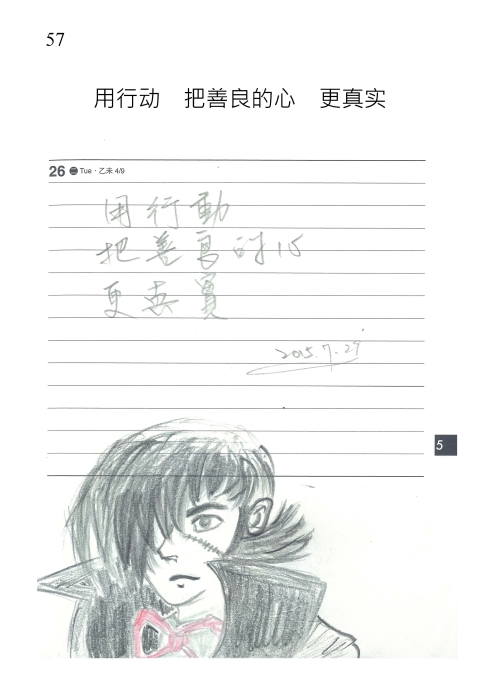 57
用行动 把善良的心 更真实
26 二 Tue · 乙未 4/9
用行動
把善良的心
更真實
2015.7.29
5